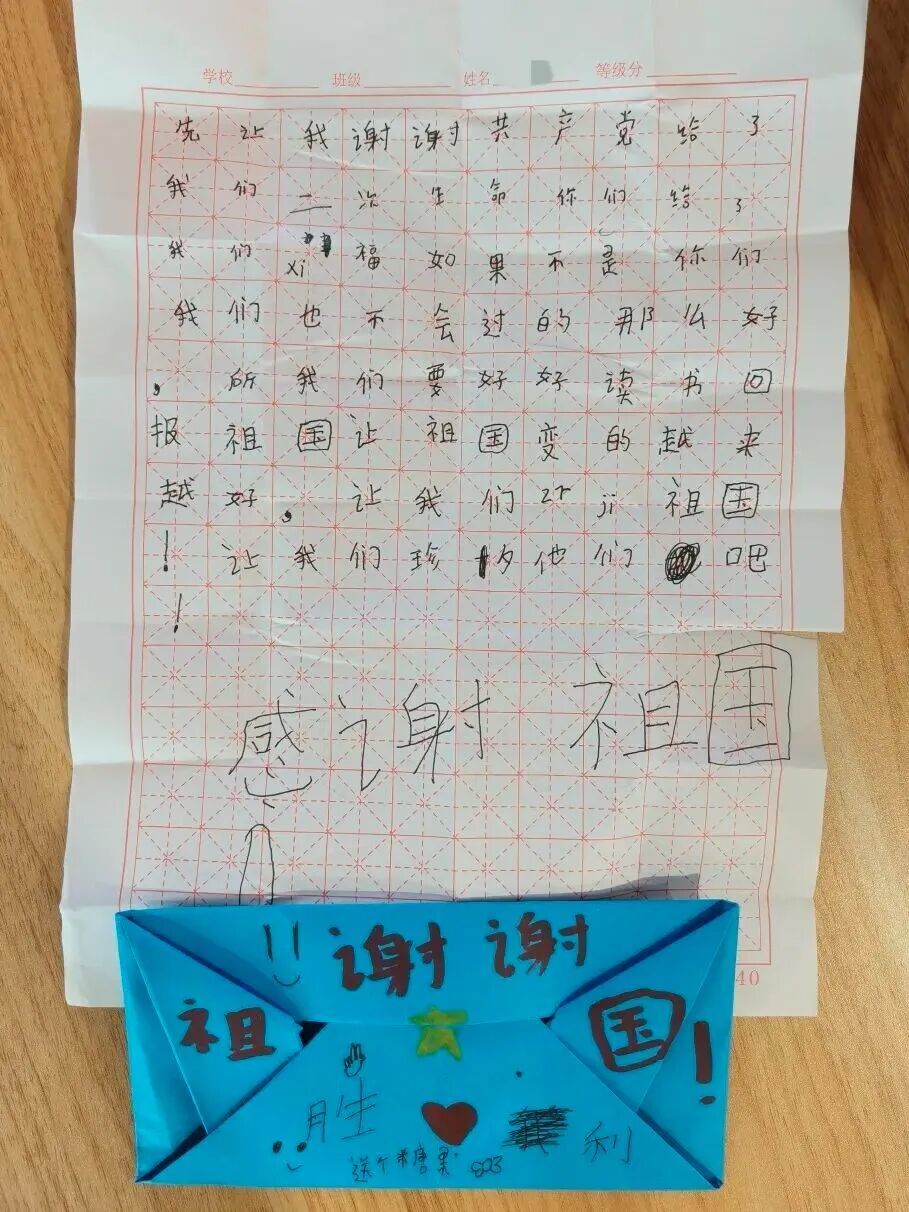 学校 班级 姓名 等级分
先让我谢谢共产党给了
我们二次生命你们给了
我们xi福如果不是你们
我们也不会过的那么好
，所我们要好好读书回
报祖国让祖国变的越来
越好，让我们 ji祖国
！让我们珍 他们 吧
！
感谢 祖国
！
40
谢谢
祖 国！
胜 利
送个糖果